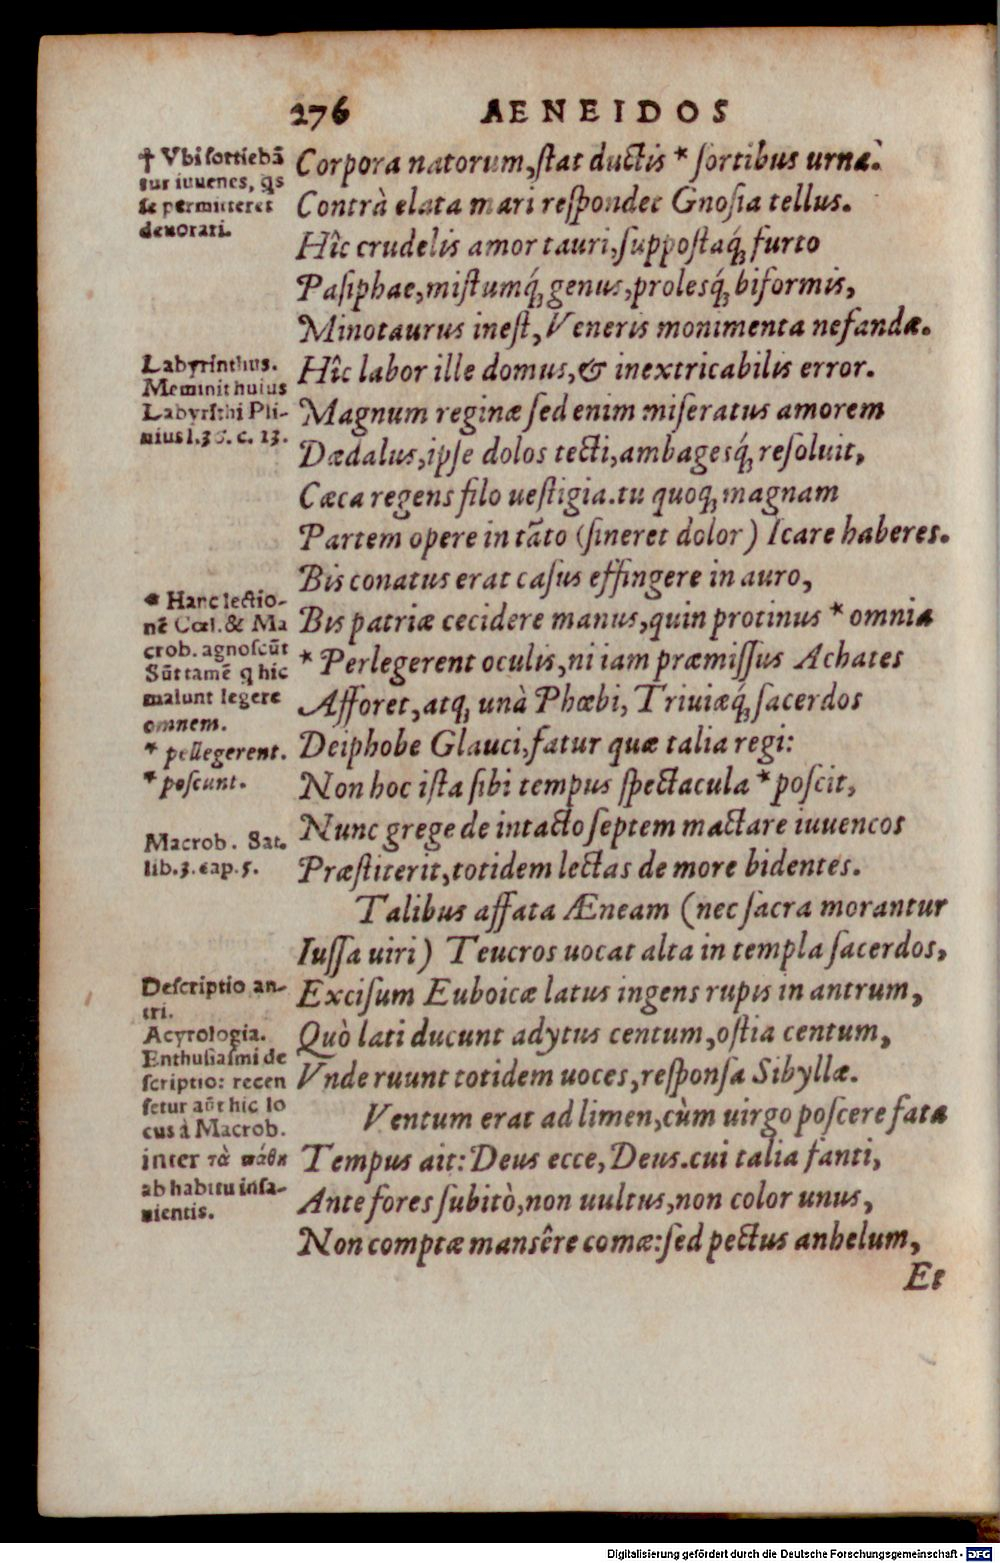 276 AENEIDOS
† Vbi sortiebã
tur iuuenes, q̃s
se permitteret
deuorari.
Corpora natorum, stat ductis * sortibus urna.
Contrà elata mari respondet Gnosia tellus.
Hîc crudelis amor tauri, suppostaq́; furto
Pasiphae, mistumq́; genus, prolesq́; biformis,
Minotaurus inest, Veneris monimenta nefandæ.
Labyrinthus.
Meminit huius
Labyrĩthi Pli-
nius l.36. c. 13.
Hîc labor ille domus, & inextricabilis error.
Magnum reginæ sed enim miseratus amorem
Dædalus, ipse dolos tecti, ambagesq́; resoluit,
Cæca regens filo uestigia. tu quoq; magnam
Partem opere in tãto (sineret dolor) Icare haberes.
Bis conatus erat casus effingere in auro,
* Hanc lectio-
nẽ Cœl. & Ma
crob. agnoscũt
Sũt tamẽ q hic
malunt legere
omnem.
* pellegerent.
* poscunt.
Bis patriæ cecidere manus, quin protinus * omnia
* Perlegerent oculis, ni iam præmissus Achates
Afforet, atq; unà Phœbi, Triuiæq́; sacerdos
Deiphobe Glauci, fatur quæ talia regi:
Non hoc ista sibi tempus spectacula * poscit,
Macrob. Sat.
lib.3. cap. 5.
Nunc grege de intacto septem mactare iuuencos
Præstiterit, totidem lectas de more bidentes.
Talibus affata Æneam (nec sacra morantur
Iussa uiri) Teucros uocat alta in templa sacerdos,
Descriptio an-
tri.
Acyrologia.
Enthusiasmi de
scriptio: recen
setur aũt hic lo
cus à Macrob.
inter τὰ πάθη
ab habitu insa-
nientis.
Excisum Euboicæ latus ingens rupis in antrum,
Quò lati ducunt adytus centum, ostia centum,
Vnde ruunt totidem uoces, responsa Sibyllæ.
Ventum erat ad limen, cùm uirgo poscere fata
Tempus ait: Deus ecce, Deus. cui talia fanti,
Ante fores subitò, non uultus, non color unus,
Non comptæ mansêre comæ: sed pectus anhelum,
Et
Digitalisierung gefördert durch die Deutsche Forschungsgemeinschaft - DFG